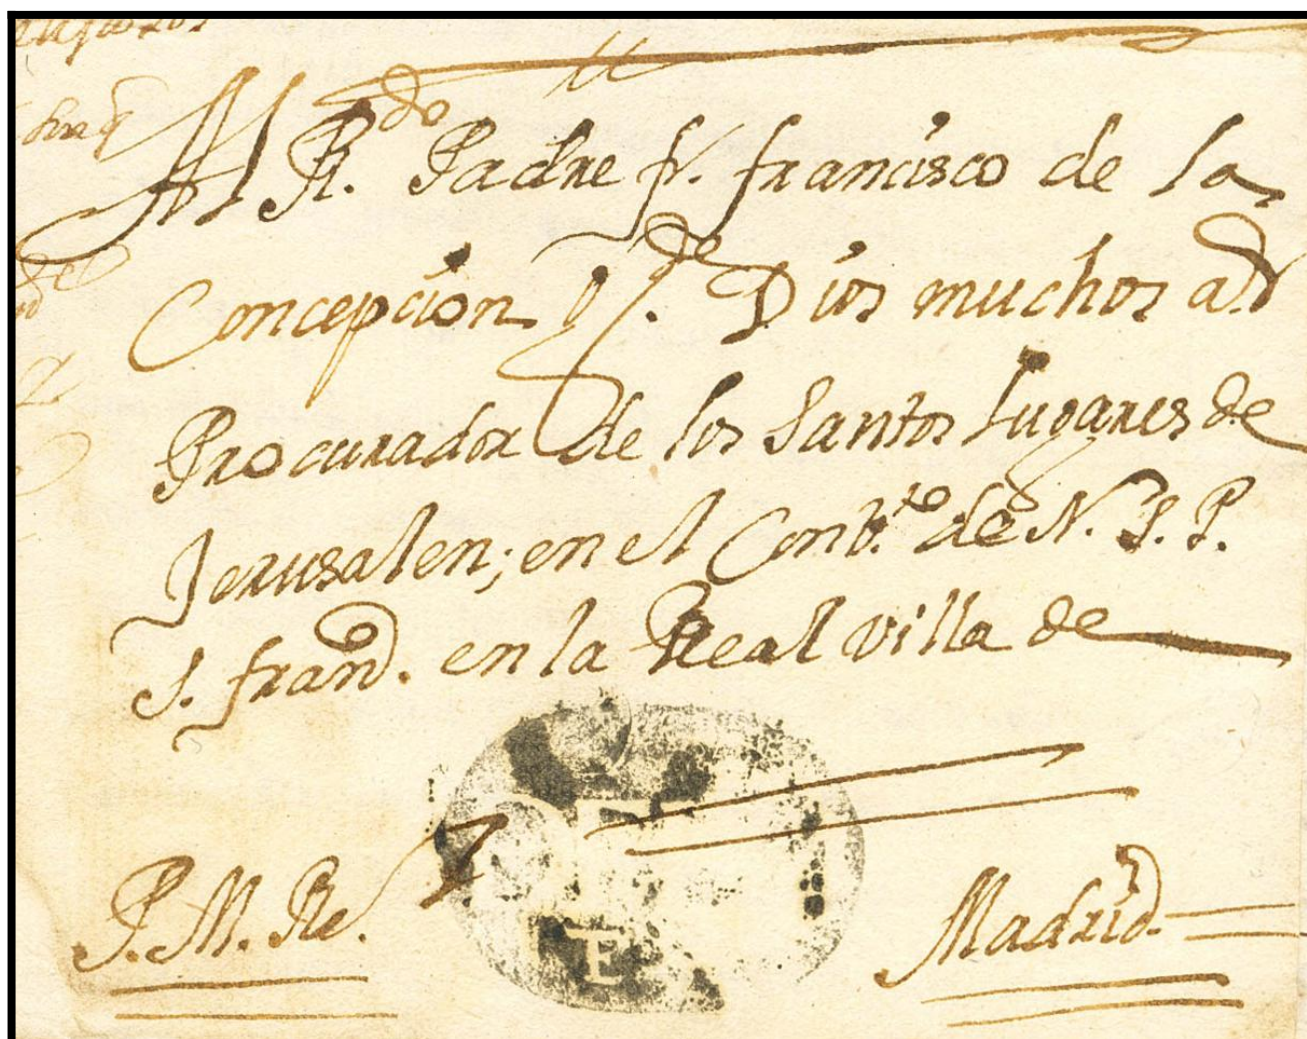 Al R.do Padre fr. francisco de la
Concepcion g.de Dios muchos a.s
Procurador de los Santos Lugares de
Jerusalen; en el Comb.to de N. S. P.
S. fran.co en la Real villa de
P. M. Re.
E
Madrid